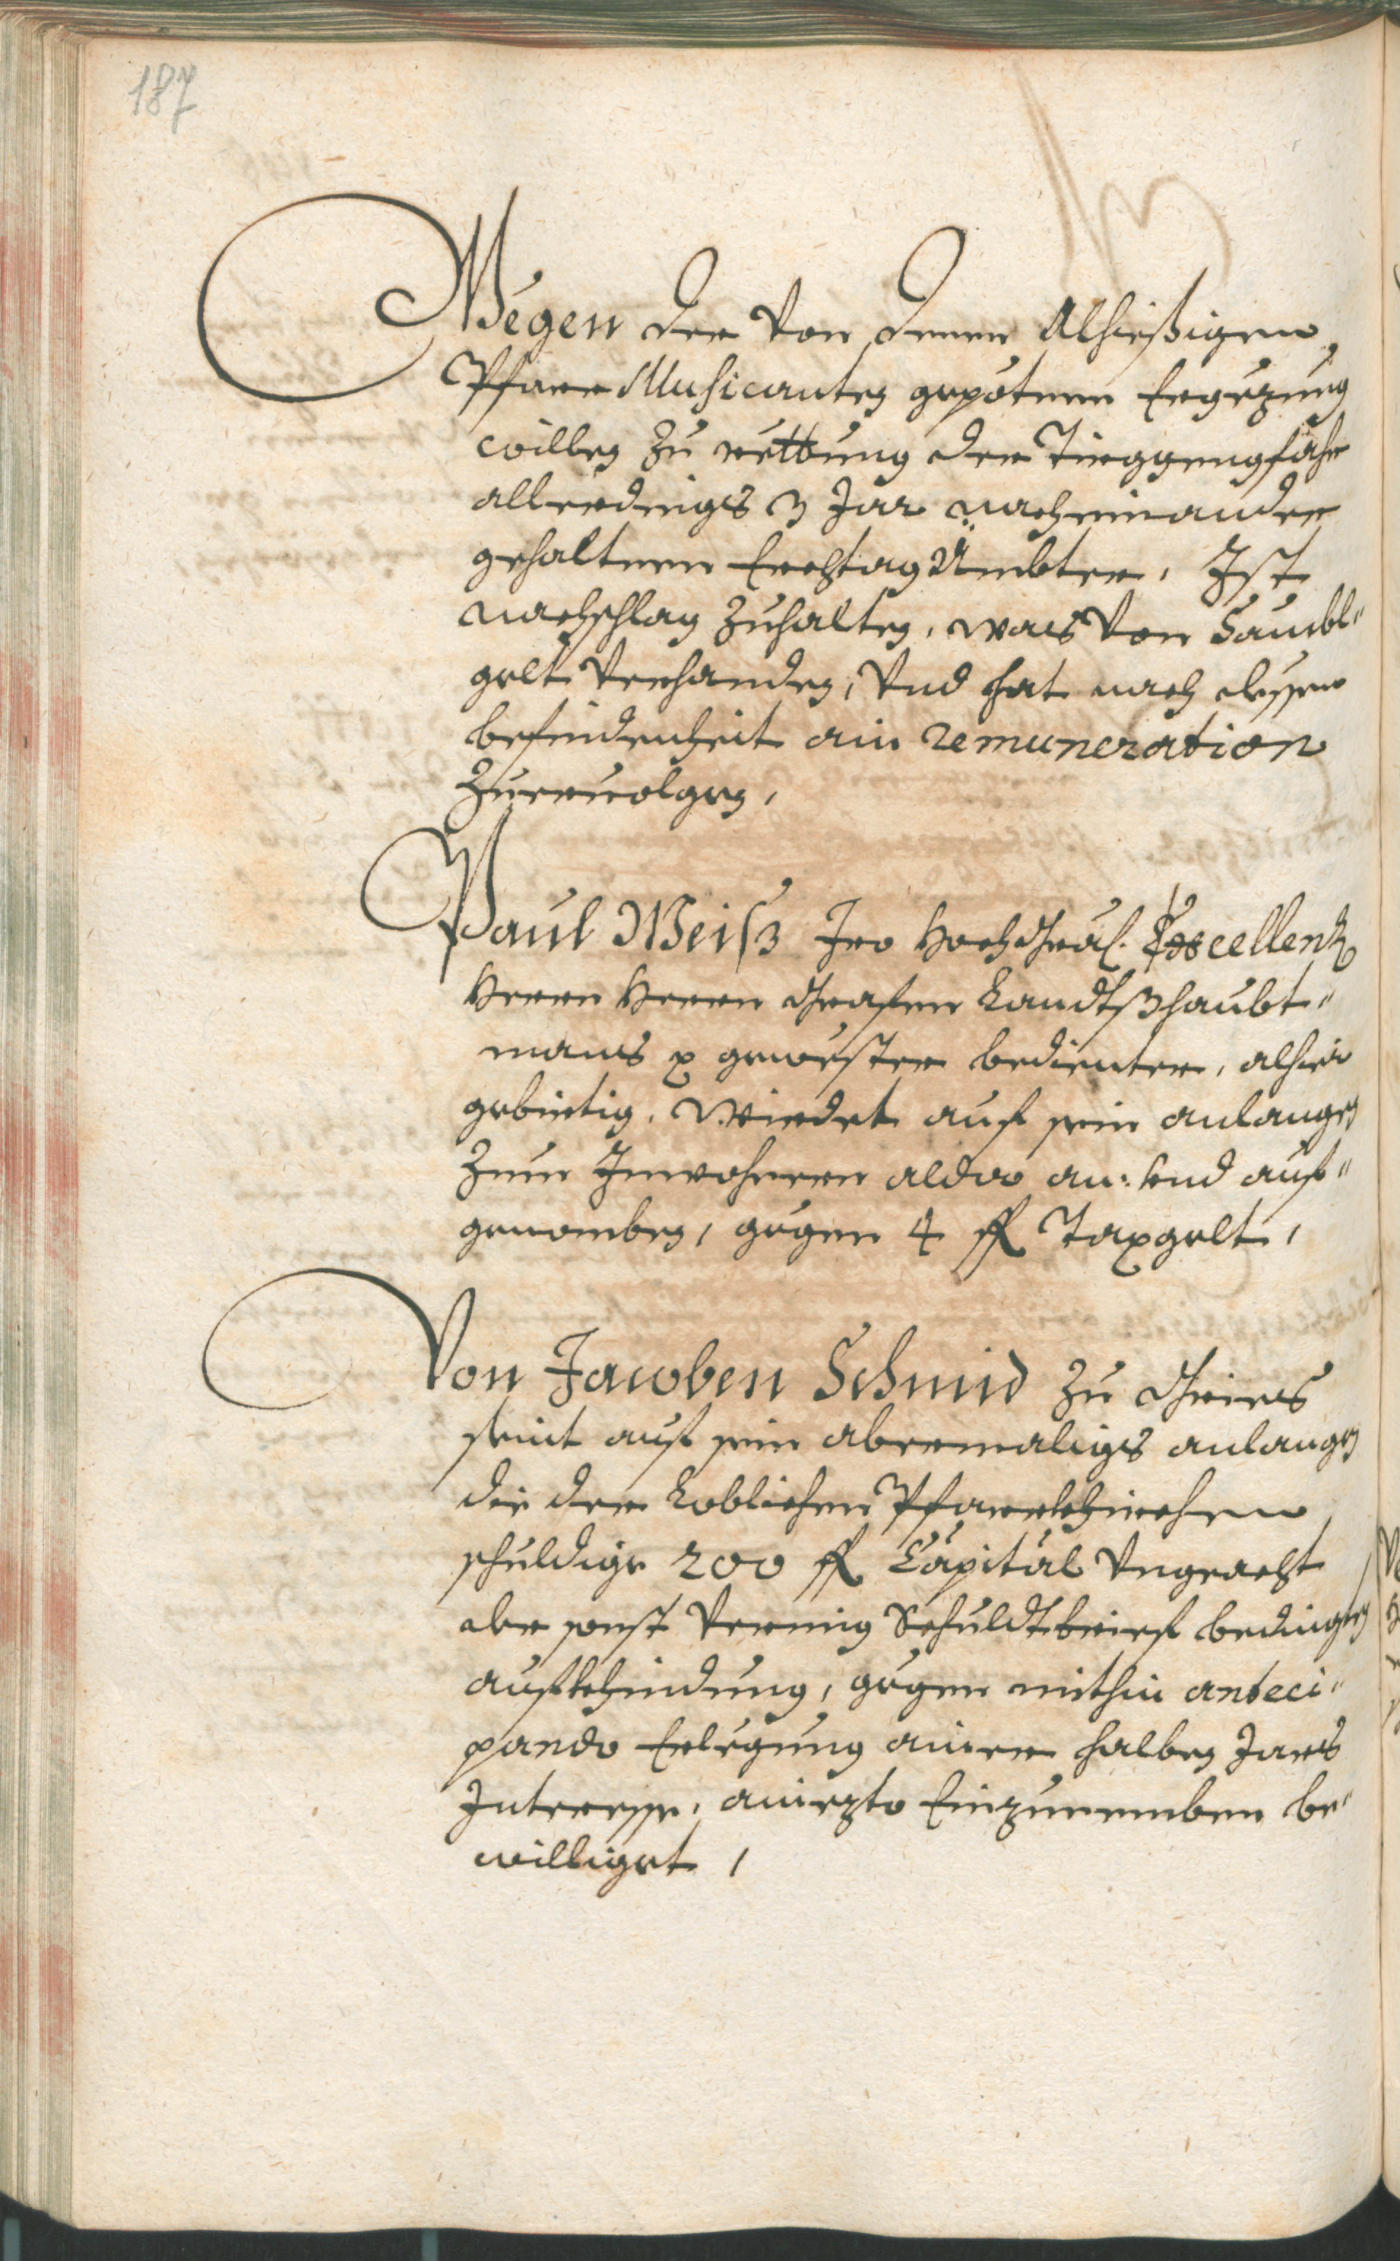 187
Wegen der von denen Alhießigen
Pfarr Musicanten gepotnen Ergezung
willen zu rettung der Türggengfahr
allerdings 3 Jar nacheinander
gehaltnen Erchtag Ämbter, Ist
nachschlag zuhalten, was von Sambl"
gelt verhanden, Vnd hat nach dessen
befindenheit ain remuneration
Zueruolgen,
Paul Weiß Iro Hochgräfl. Excellenz
Herrn Herrn Grafen Landtßhaubt"
mans p gewester bedienter, alhie
gebirtig, wirdet auf sein anlangen
Zum Inwohnern alda an: vnd auf"
genomben, gegen 4 fl Taxgelt,
Von Jacoben Schmid zu Gries
seint auf sein abermaligs anlangen
die der Loblichen Pfarrkhirchen
schuldige 200 fl Capital Vngeacht
der sonst Vermig Schuldtbrief bedingten
aufkhindung, gegen mithin anteci"
pando Erlegung aines halben Jars
Interesse, aniezto Einzunemben be"
williget,